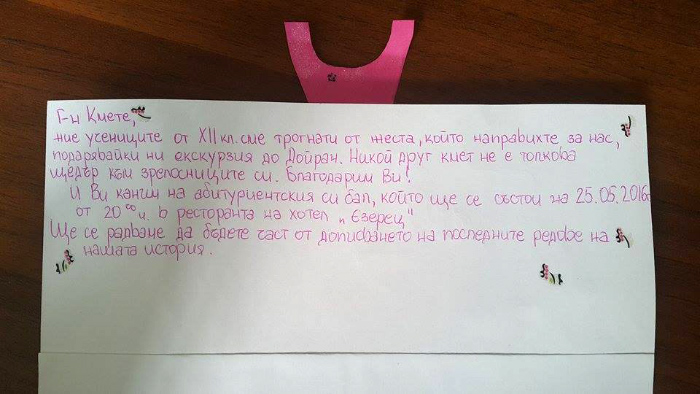 Г-н Кмете,
ние учениците от XII кл. сме трогнати от жеста, който направихте за нас,
подарявайки ни екскурзия до Дойран. Никой друг кмет не е толкова
щедър към зрелостниците си. Благодарим Ви!
И Ви каним на абитуриентския си бал, който ще се състои на 25.05.2016г.
от 20⁰⁰ч. в ресторанта на хотел „Езерец"
Ще се радваме да бъдете част от дописването на последните редове на
нашата история.